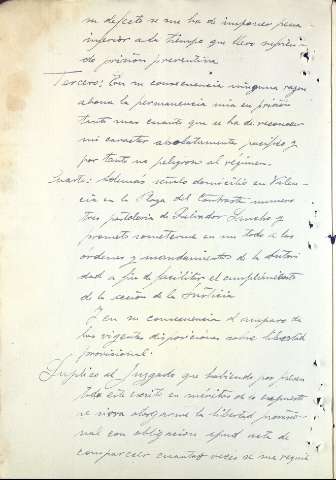 su defecto se me ha de imponer pena
inferior a la tiempo que llevo sufrien-
do prisión preventiva
Tercero: Que en su consecuencia ninguna razon
abona la permanencia mia en prisión
tanto mas cuanto que se ha de reconocer
mi caracter absolutamente pacifico y
por tanto no peligroso al régimen.
Cuarto: Además señalo domicilio en Valen-
cia en la Plaza del Contraste numero
tres pasteleria de Salvador Sancho y
prometo someterme en un todo a las
ordenes y mandamientos de la Autori
dad a fin de facilitar el cumplimiento
de la acción de la Justicia
Y en su consecuencia al amparo de
las vigentes disposiciones sobre libertad
provisional:
Suplico al Juzgado que habiendo por presen
tado este escrito en méritos de lo expuesto
se sirva otorgarme la libertad provisio-
nal con obligacion apud acta de
comparecer cuantas veces se me requie